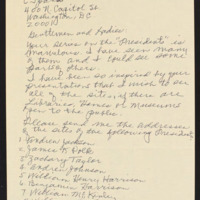 C-Span
400 N. Capitol St.
Washington, DC
20001
Gentlemen and Ladies:
Your Series on the "Presidents" is
Marvelous. I have seen many
of them and I could see some
parts others.
I have been so inspired by your
presentations that I wish to see
all the sites, if there are
Libraries, Homes or Museums
Open to the public.
Please send me the addresses
of the sites of the following Presidents
1. Andrew Jackson
2. James K. Polk
3. Zachary Taylor
4. Andrew Johnson
5. William Henry Harrison
6. Benjamin Harrison
7. William McKinley